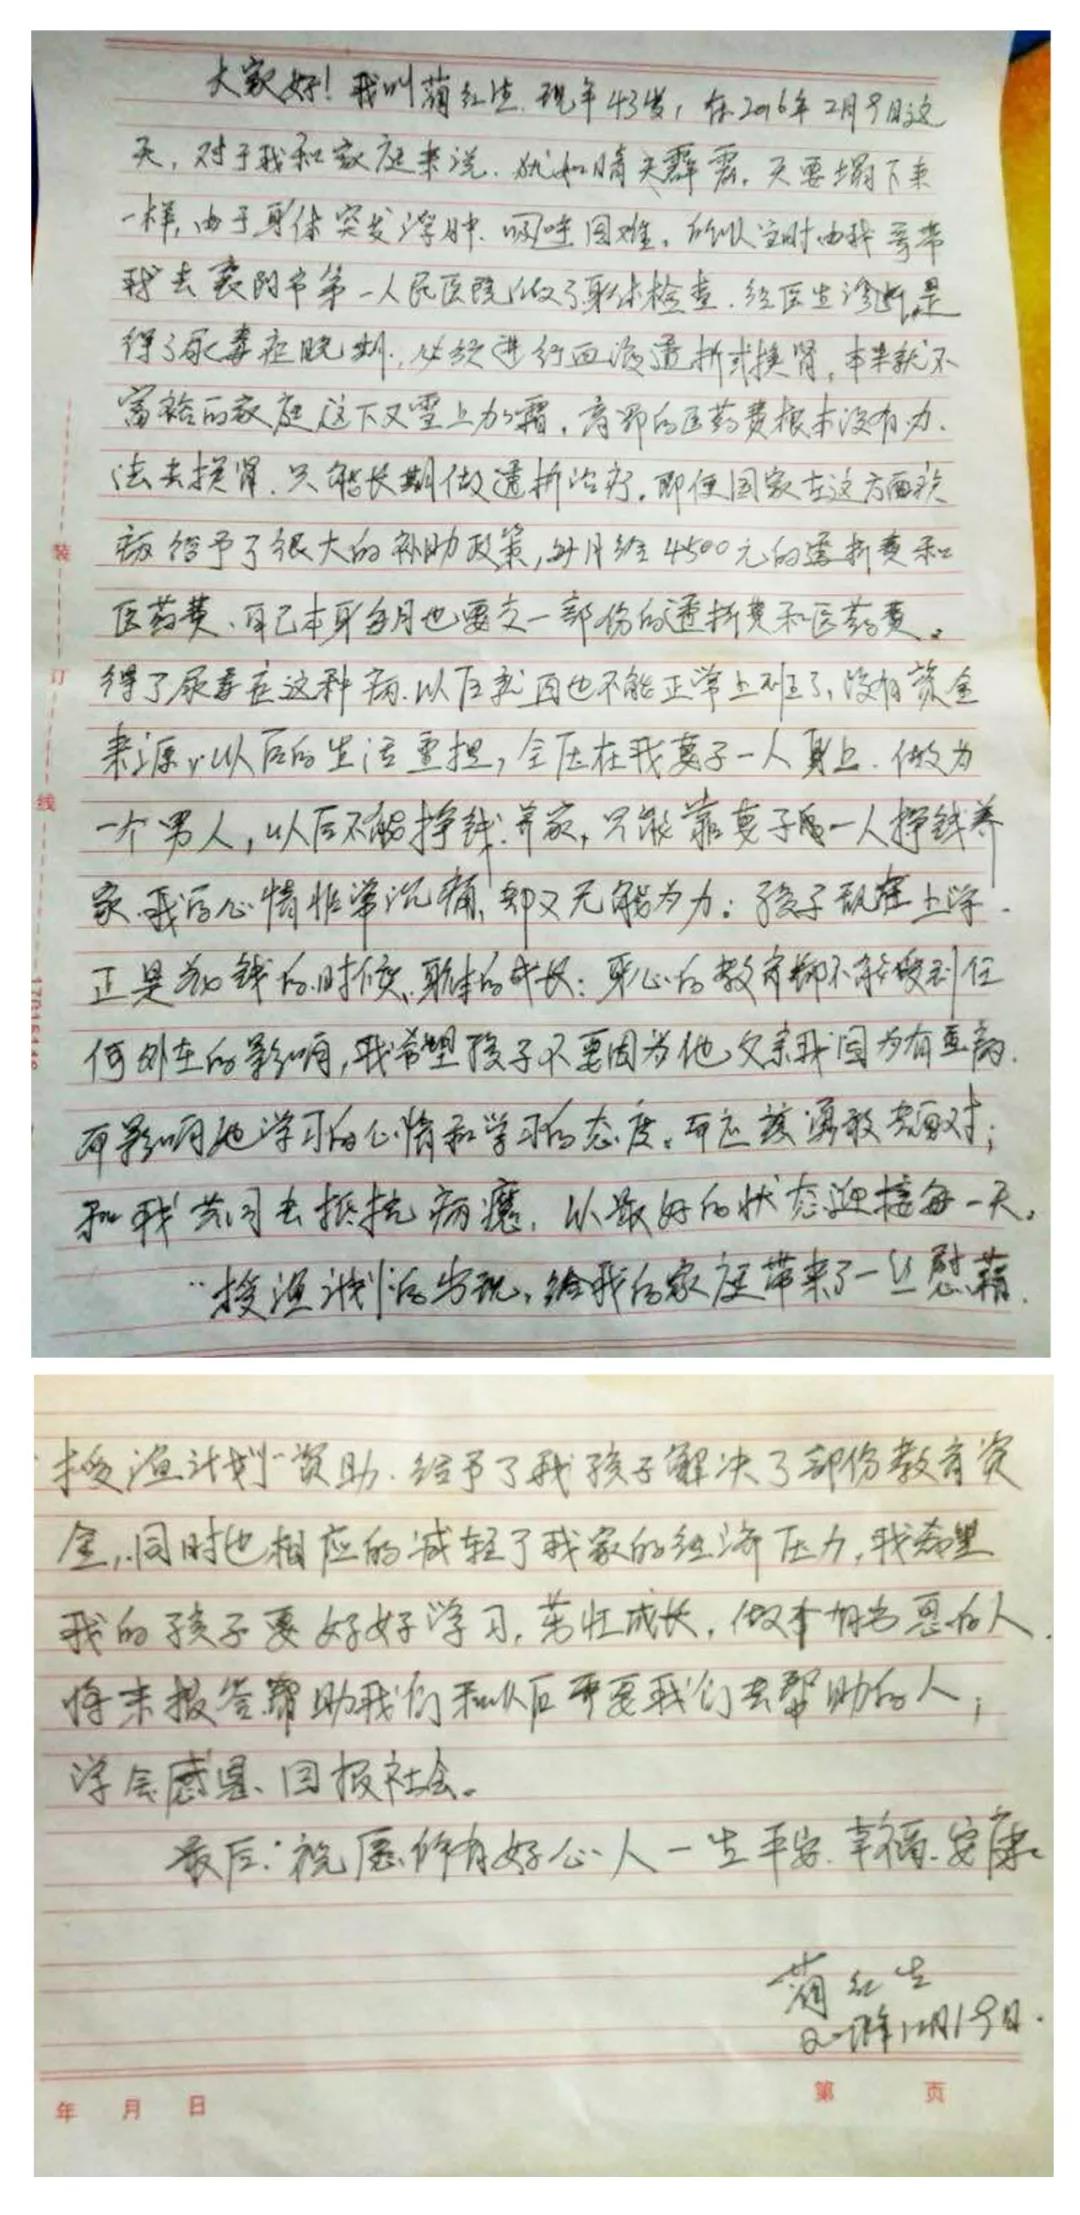 大家好！我叫蕳红生.现年43岁，在2016年2月9日这
天，对于我和家庭来说.犹如晴天霹雳.天要塌下来
一样，由于身体突发浮肿、呼吸困难。所以当时由我哥带
我去襄阳市第一人民医院做了身体检查.经医生诊断是
得了尿毒症晚期.必须进行血液透折或换肾，本来就不
富裕的家庭这下又雪上加霜，高昂的医药费根本没有办
法去换肾.只能长期做透折治疗.即便国家在这方面疾
病给予了很大的补助政策，每月给4500元的透折费和
医药费、自己本身每月也要交一部份的透折费和医药费。
得了尿毒症这种病.以后就再也不能正常上班了，没有资金
来源，以后的生活重担，全压在我妻子一人身上.做为
一个男人，以后不能挣钱养家，只能靠妻子一人挣钱养
家.我的心情非常沉痛，却又无能为力；孩子现在上学.
正是花钱的时候、身体的成长；身心的教育都不能受到任
何外在的影响，我希望孩子不要因为他父亲我因为有重病.
而影响他学习的心情和学习的态度。而应该勇敢去面对；
和我共同去抵抗病魔.以最好的状态迎接每一天。
“授渔计划的出现，给我的家庭带来了一丝慰藉.
“授渔计划”资助.给予了我孩子解决了部份教育资
金，同时也相应的减轻了我家的经济压力，我希望
我的孩子要好好学习，茁壮成长，做个有感恩的人.
将来报答帮助我们和以后需要我们去帮助的人；
学会感恩、回报社会。
最后：祝愿所有好心人一生平安.幸福.安康
蕳红生
12月19日.
装
订
线
年 月 日
第 页